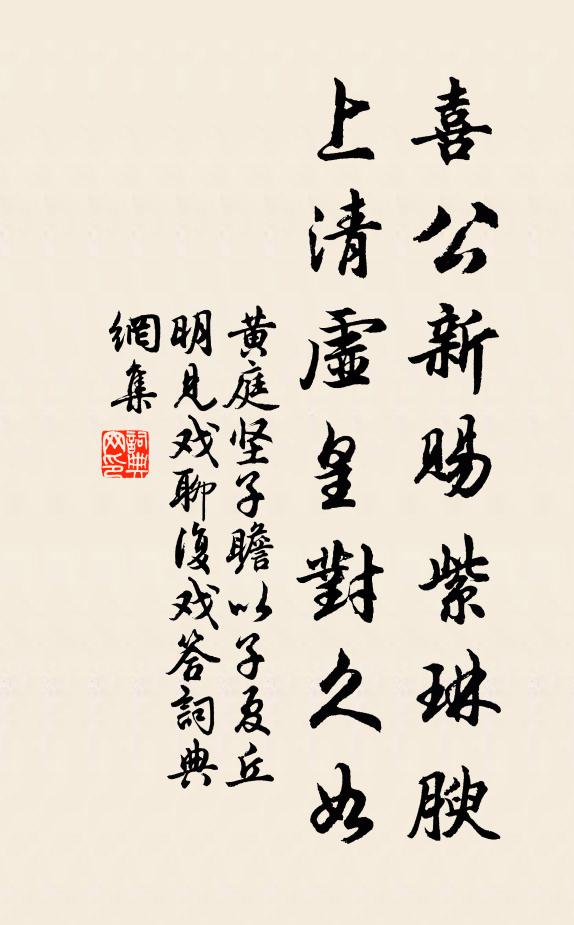 喜公新賜紫琳腴
上清虛皇對久如
黄庭坚子瞻以子夏丘
明見戏聊復戏答詞典
網集
詞典網印